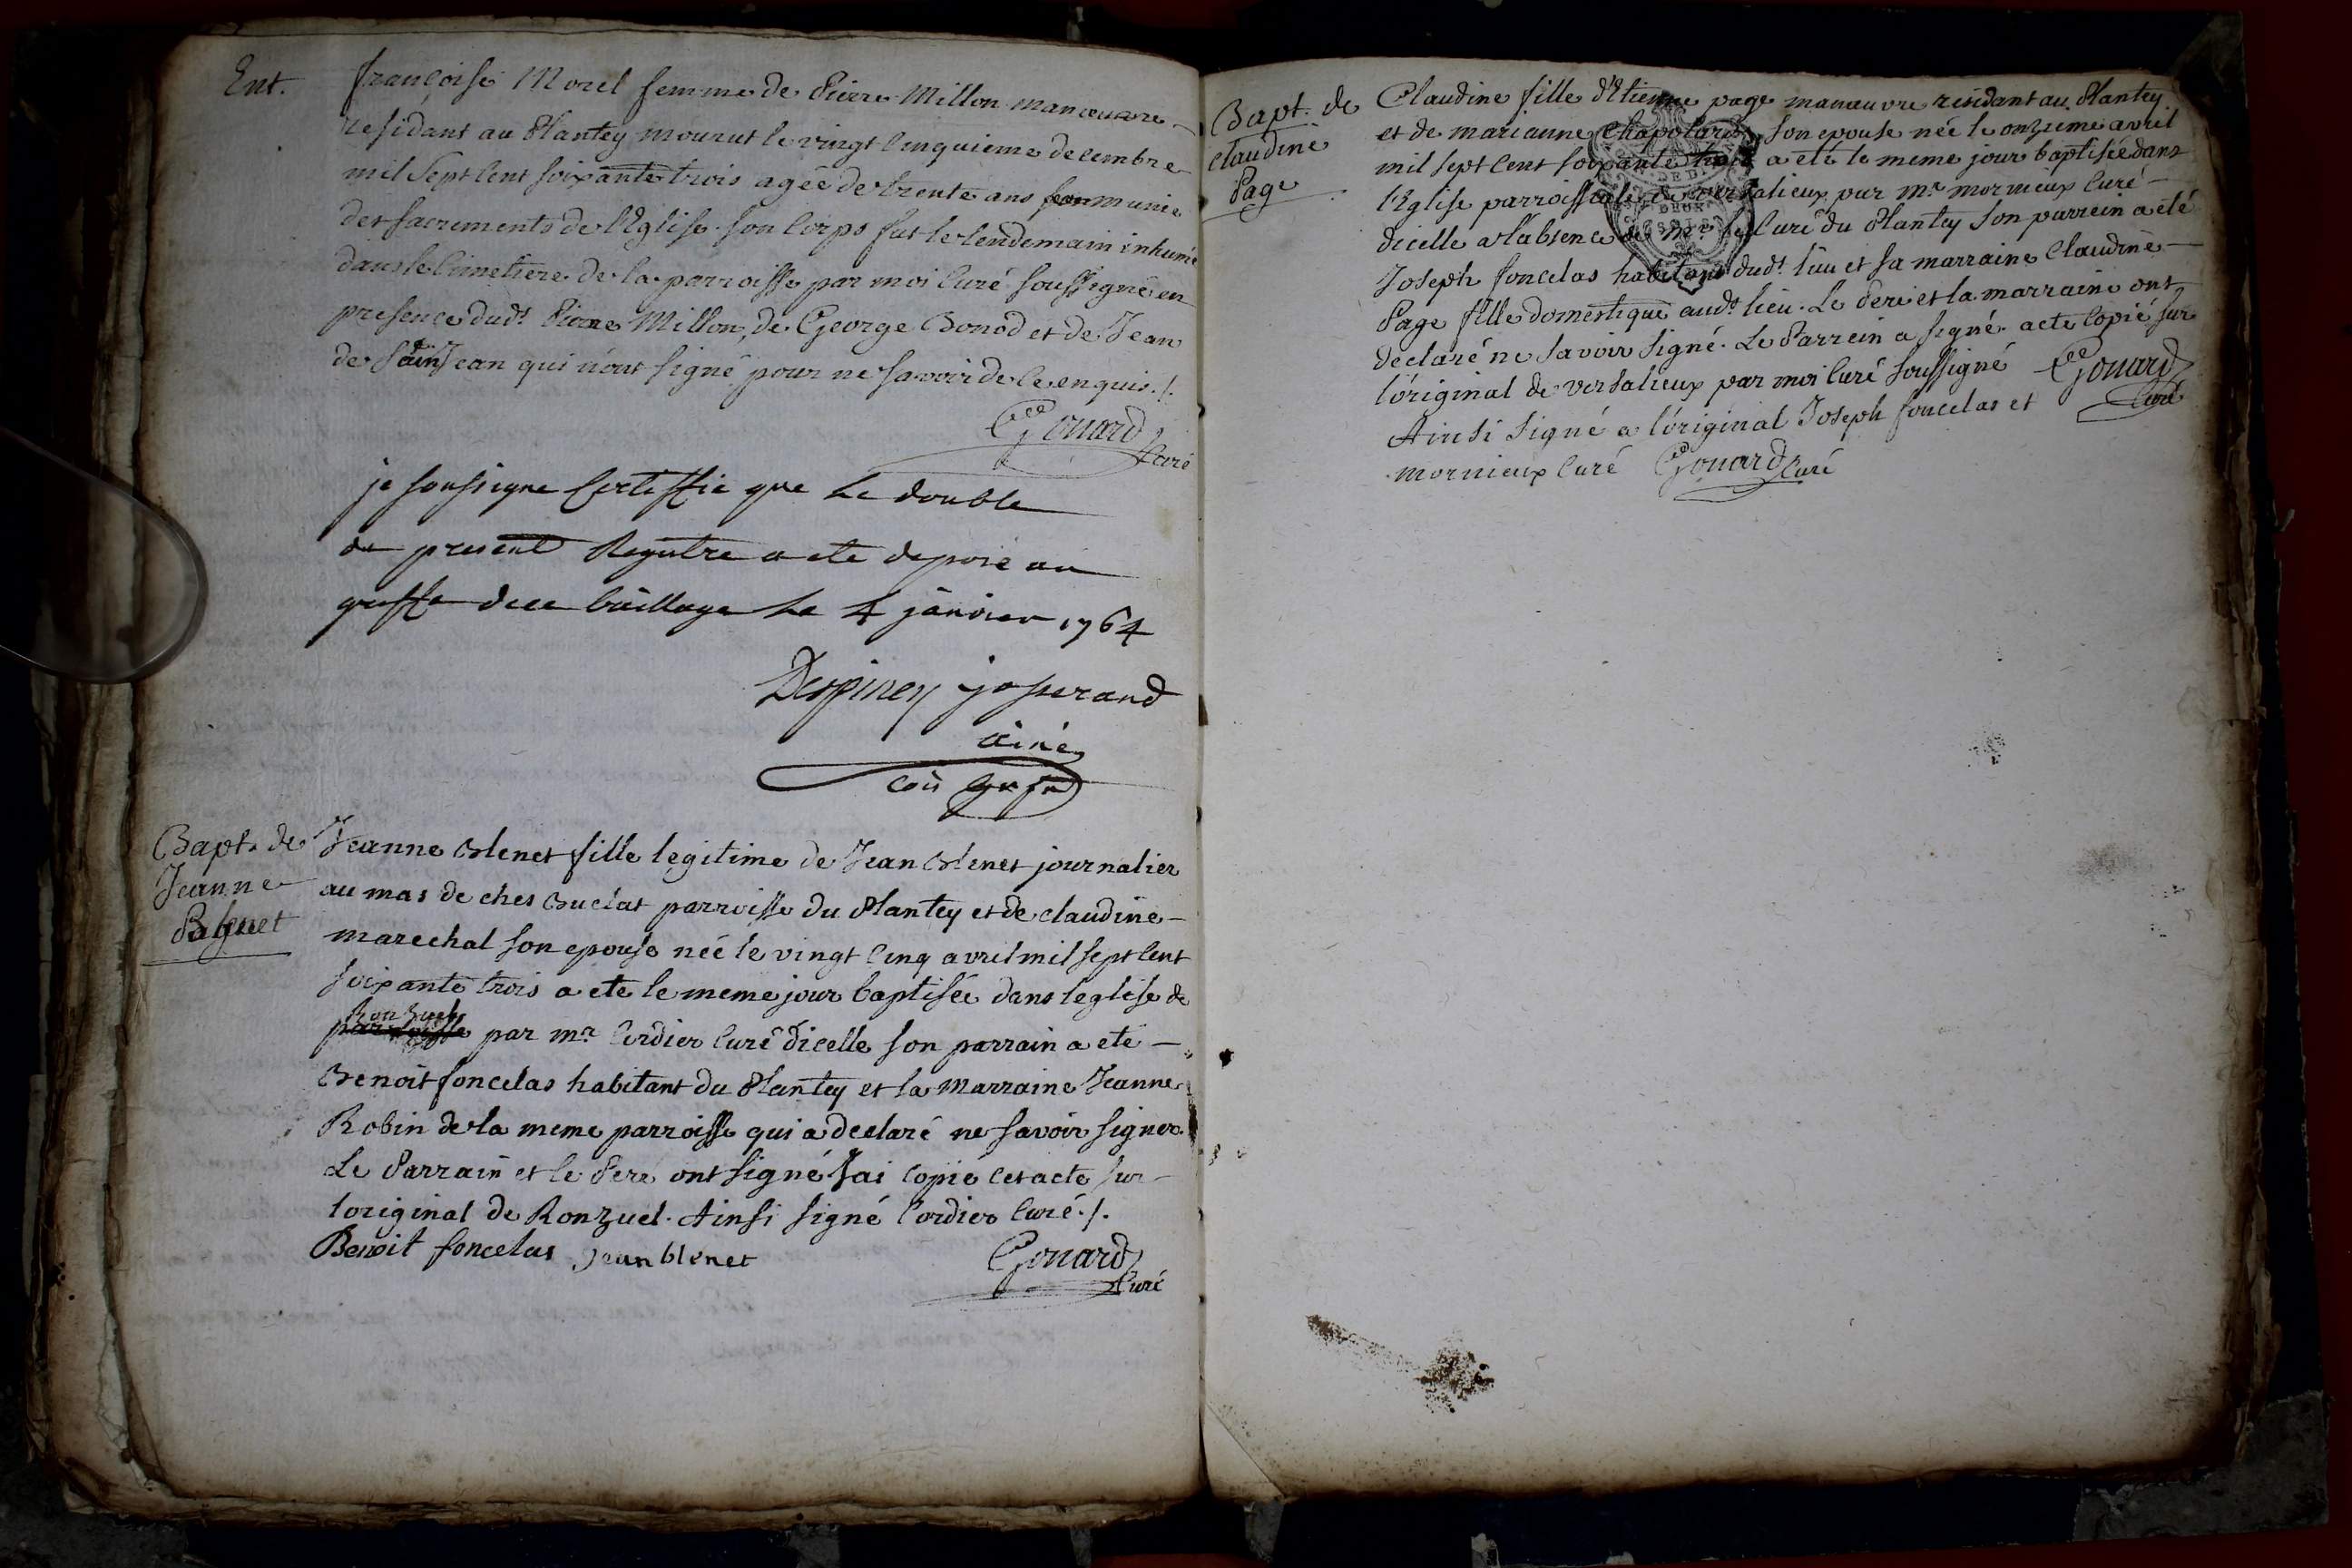 Ent.
françoise Morel femme de Pierre Millon manœuvre
residant au Plantey mourut le vingt cinquieme decembre
mil sept cent soixante trois agée de trente ans munie
des sacrements de l'Eglise. son corps fut le lendemain inhumé
dans le cimetiere de la parroisse par moi curé soussigné en
presence dudt Pierre Millon, de George Bonod et de Jean
de Sain Jean qui n'ont signé pour ne savoir de ce enquis ./.
Gouard
Curé
je soussigne Certiffie que le double
du present Registre a ete deposé au
greffe de ce bailliage le 4 janvier 1764
Despiney josserand
ainé
Bapt. de
Jeanne
Blenet
Jeanne Blenet fille legitime de Jean Blenet journalier
au mas de ches Buclat parroisse du Plantey et de claudine
marechal son epouse née le vingt cinq avril mil sept cent
soixante trois a ete le meme jour baptisée dans leglise de
Ronzuel
parroisse par mr Cordier Curé dicelle son parrain a eté
Benoit foncelas habitant du Plantey et la Marraine Jeanne
Robin de la meme parroisse qui a declaré ne savoir signer.
Le Parrain et le Pere ont signé. Jai copié cet acte sur
loriginal de Ronzuel. Ainsi signé Cordier Curé ./.
Benoit foncelas jean blenet
Gouard
Curé
Bapt. de
claudine
Page
Claudine fille d'Etienne page manœuvre residant au Plantey
et de marianne Chapolard son epouse née le onzieme avril
mil sept cent soixante trois a eté le meme jour baptisée dans
l'Eglise parroissiale de versalieux par mr mornieux Curé
dicelle a l'absence de mr le Curé du Plantey son parrein a eté
Joseph foncelas habitant dudt lieu et sa marraine Claudine
Page fille domestique audt lieu. Le Pere et la marraine ont
declaré ne savoir signé. Le Parrein a signé. acte Copié sur
l'original de versalieux par moi Curé soussigné Gouard
Curé
Ainsi signé a l'original Joseph foncelas et
mornieux Curé Gouard Curé